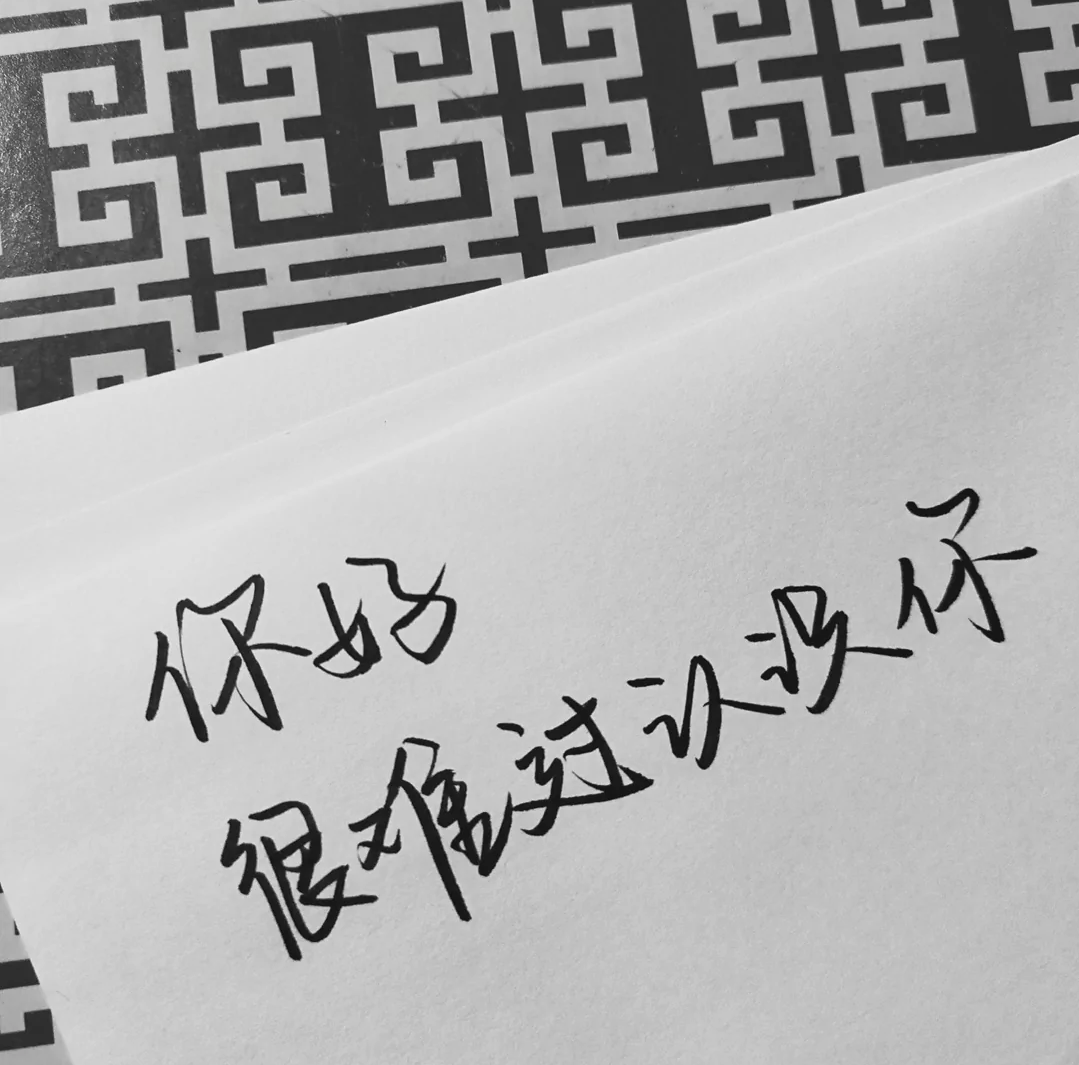 你好
很难过认识你